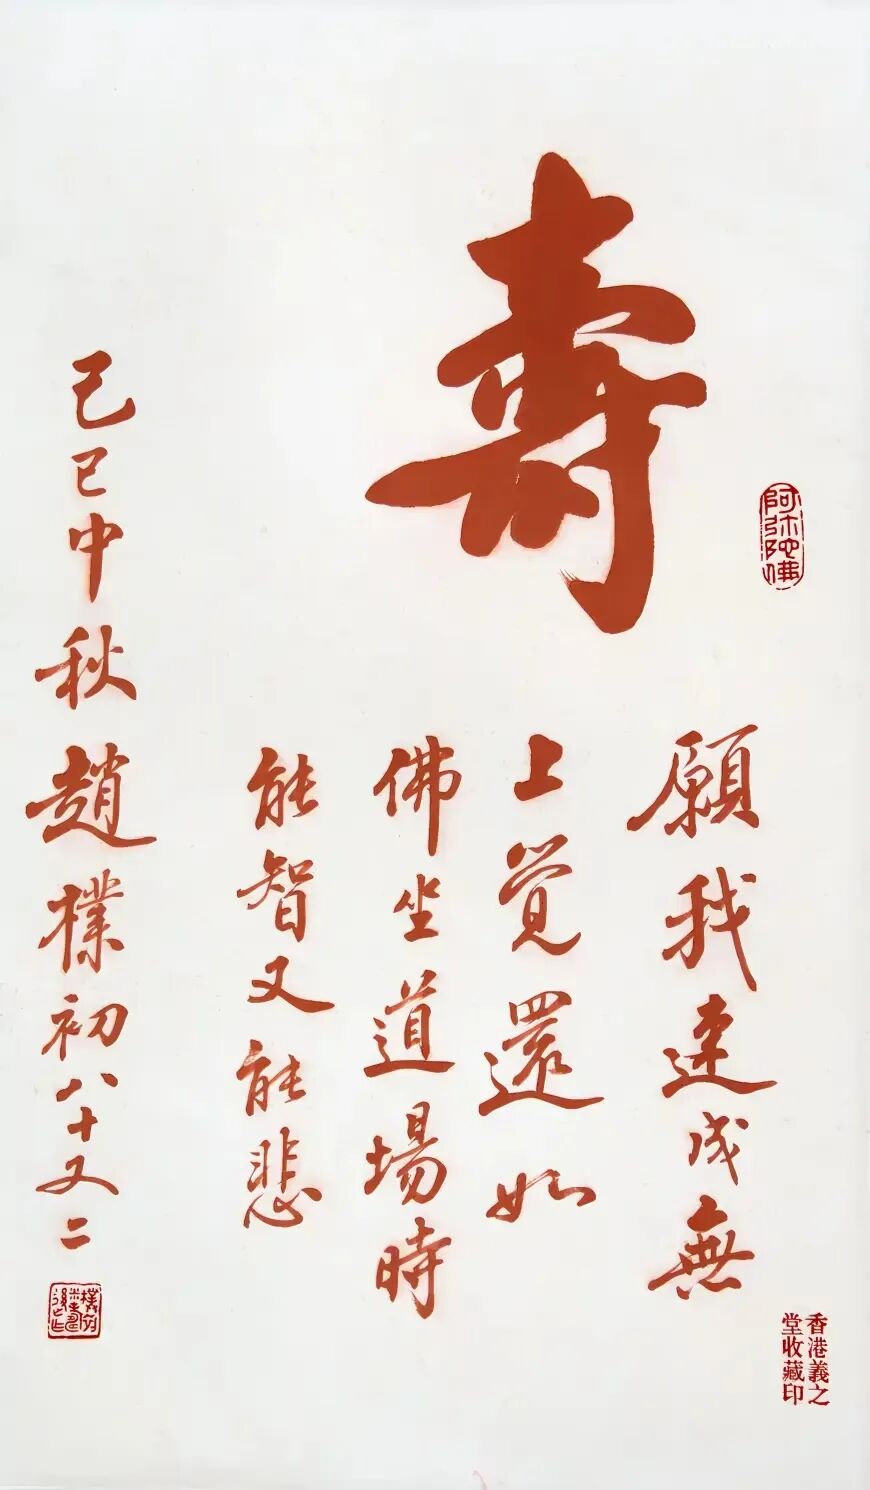 阿弥陀佛
壽
願我速成無
上覚還如
佛坐道場時
能智又能悲
己巳中秋趙樸初八十又二
香港義之
堂收藏印